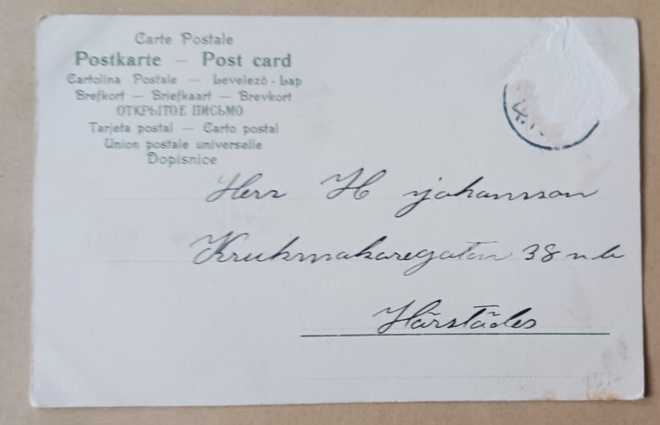 Carte Postale
Postkarte — Post card
Cartolina Postale — Levelező-Lap
Brefkort — Briefkaart — Brevkort
ОТКРЫТОЕ ПИСЬМО
Tarjeta postal — Carto postal
Union postale universelle
Dopisnice
Herr H johansson
Krukmakaregatan 38 n b
Härstädes